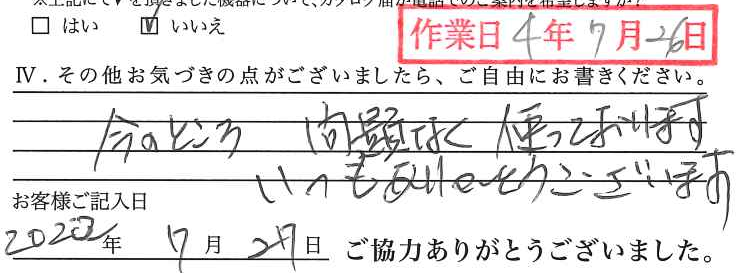 ※上記にて✓を頂きました機器について、カタログ届か電話でのご案内を希望しますか？
□ はい ☑ いいえ
作業日 4年 7月26日
Ⅳ．その他お気づきの点がございましたら、ご自由にお書きください。
今のところ 問題なく 使っております
いつもありがとうございます
お客様ご記入日
2022年 7月 27日 ご協力ありがとうございました。